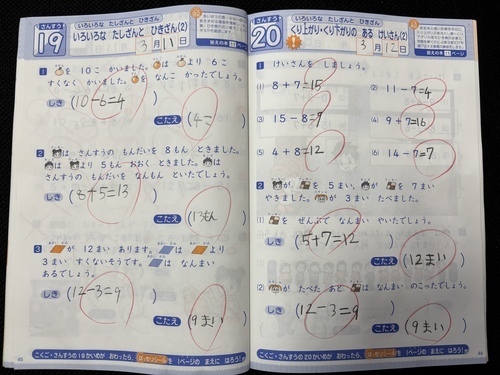 さんすう
19
いろいろな たしざんと ひきざん
いろいろな たしざんと ひきざん(2)
答えの本11ページ
3月11日
1 を 10こ かいました。は より 6こ
すくなく かいました。を なんこ かったでしょう。
しき (10-6=4)
こたえ (4こ)
2 は さんすうの もんだいを 8もん ときました。
は より 5もん おおく ときました。は
さんすうの もんだいを なんもん といたでしょう。
しき (8+5=13)
こたえ (13もん)
3 が 12まい あります。は より
3まい すくないそうです。は なんまい
あるでしょう。
しき (12-3=9)
こたえ (9まい)
こくご・さんすうの 19かいめが おわったら、 を 1ページの まえに はろう!
さんすう
20
いろいろな たしざんと ひきざん
くり上がり・くり下がりの ある けいさん(2)
答えの本11ページ
3月12日
1 けいさんを しましょう。
(1) 8+7=15
(2) 11-7=4
(3) 15-8=7
(4) 9+7=16
(5) 4+8=12
(6) 14-7=7
2 が を 5まい、が を 7まい
やきました。が 3まい たべました。
(1) を ぜんぶで なんまい やいたでしょう。
しき (5+7=12)
こたえ (12まい)
(2) が たべた あと は なんまい のこったでしょう。
しき (12-3=9)
こたえ (9まい)
こくご・さんすうの 20かいめが おわったら、 を 1ページの まえに はろう!